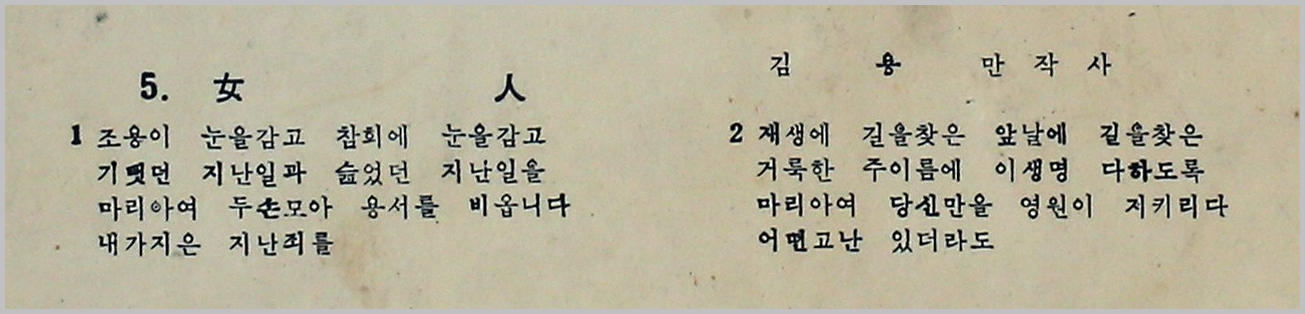 5. 女 人
김 용 만 작 사
1 조용이 눈을감고 참회에 눈을감고
기뻣던 지난일과 슲었던 지난일을
마리아여 두손모아 용서를 비옵니다
내가지은 지난죄를
2 재생에 길을찾은 앞날에 길을찾은
거룩한 주이름에 이생명 다하도록
마리아여 당신만을 영원이 지키리다
어떤고난 있더라도